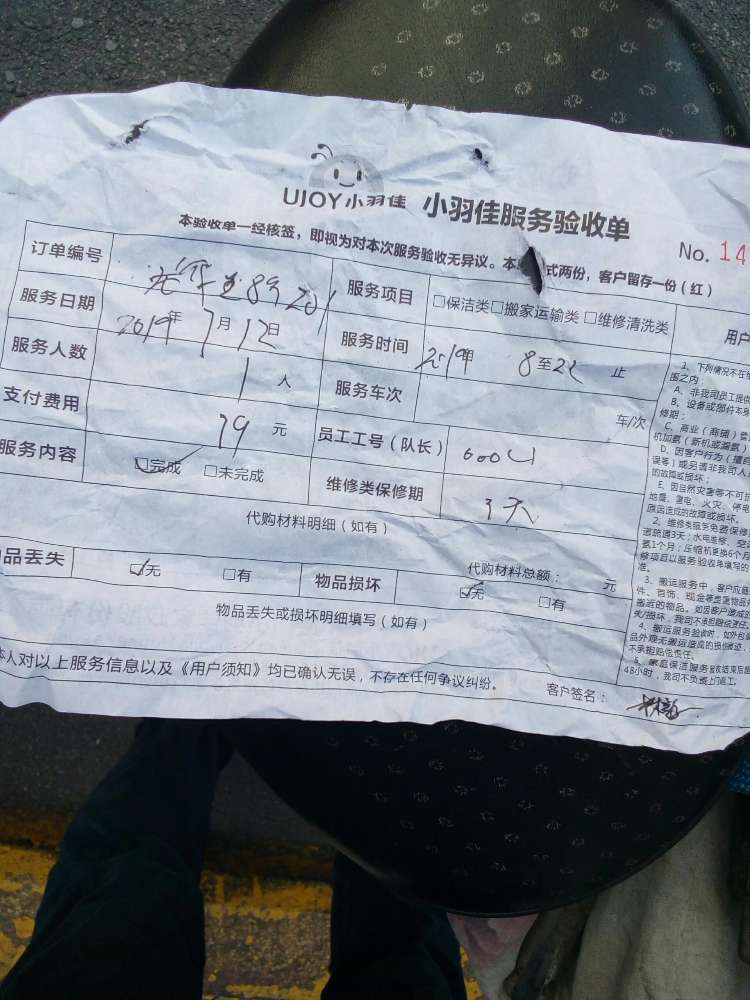 UJOY小羽佳 小羽佳服务验收单
No. 14
本验收单一经核签，即视为对本次服务验收无异议。本 式两份，客户留存一份（红）
订单编号 8号201 服务项目 □保洁类□搬家运输类□维修清洗类
服务日期 2019年7月12日 服务时间 2019年 8至22 止
服务人数 1人 服务车次 车/次
支付费用 79元 员工工号（队长）
服务内容 ☑完成 □未完成 维修类保修期 3天
代购材料明细（如有）
代购材料总额： 元
品丢失 ☑无 □有 物品损坏 ☑无 □有
物品丢失或损坏明细填写（如有）
本人对以上服务信息以及《用户须知》均已确认无误，不存在任何争议纠纷。
客户签名：
用户
1、下列情况不在
围之内：
A、非我司员工提供
B、设备或部件本
修期；
C、商业（商铺）
机加氨（新机或漏氨）
D、因客户行为（擅自
误等）或另请非我司人
的故障或损坏；
E、因自然灾害等不可抗
地震、雷电、火灾、停电
原因造成的故障或损坏。
2、维修类服务免费保修
道疏通3天；水电维修、空
氨1个月；压缩机更换6个月
修项目以服务验收单填写的
准。
3、搬运服务中，客户应
件、首饰、现金等贵重物品
搬运的物品。如因客户造成的
失/损坏，我司不承担赔偿责任。
4、搬运服务验收时，如外包
品外观无搬运造成的损伤痕迹，
不承担赔偿责任。
5、家庭保洁服务验收结束后超
48小时，我司不负责上门返工。